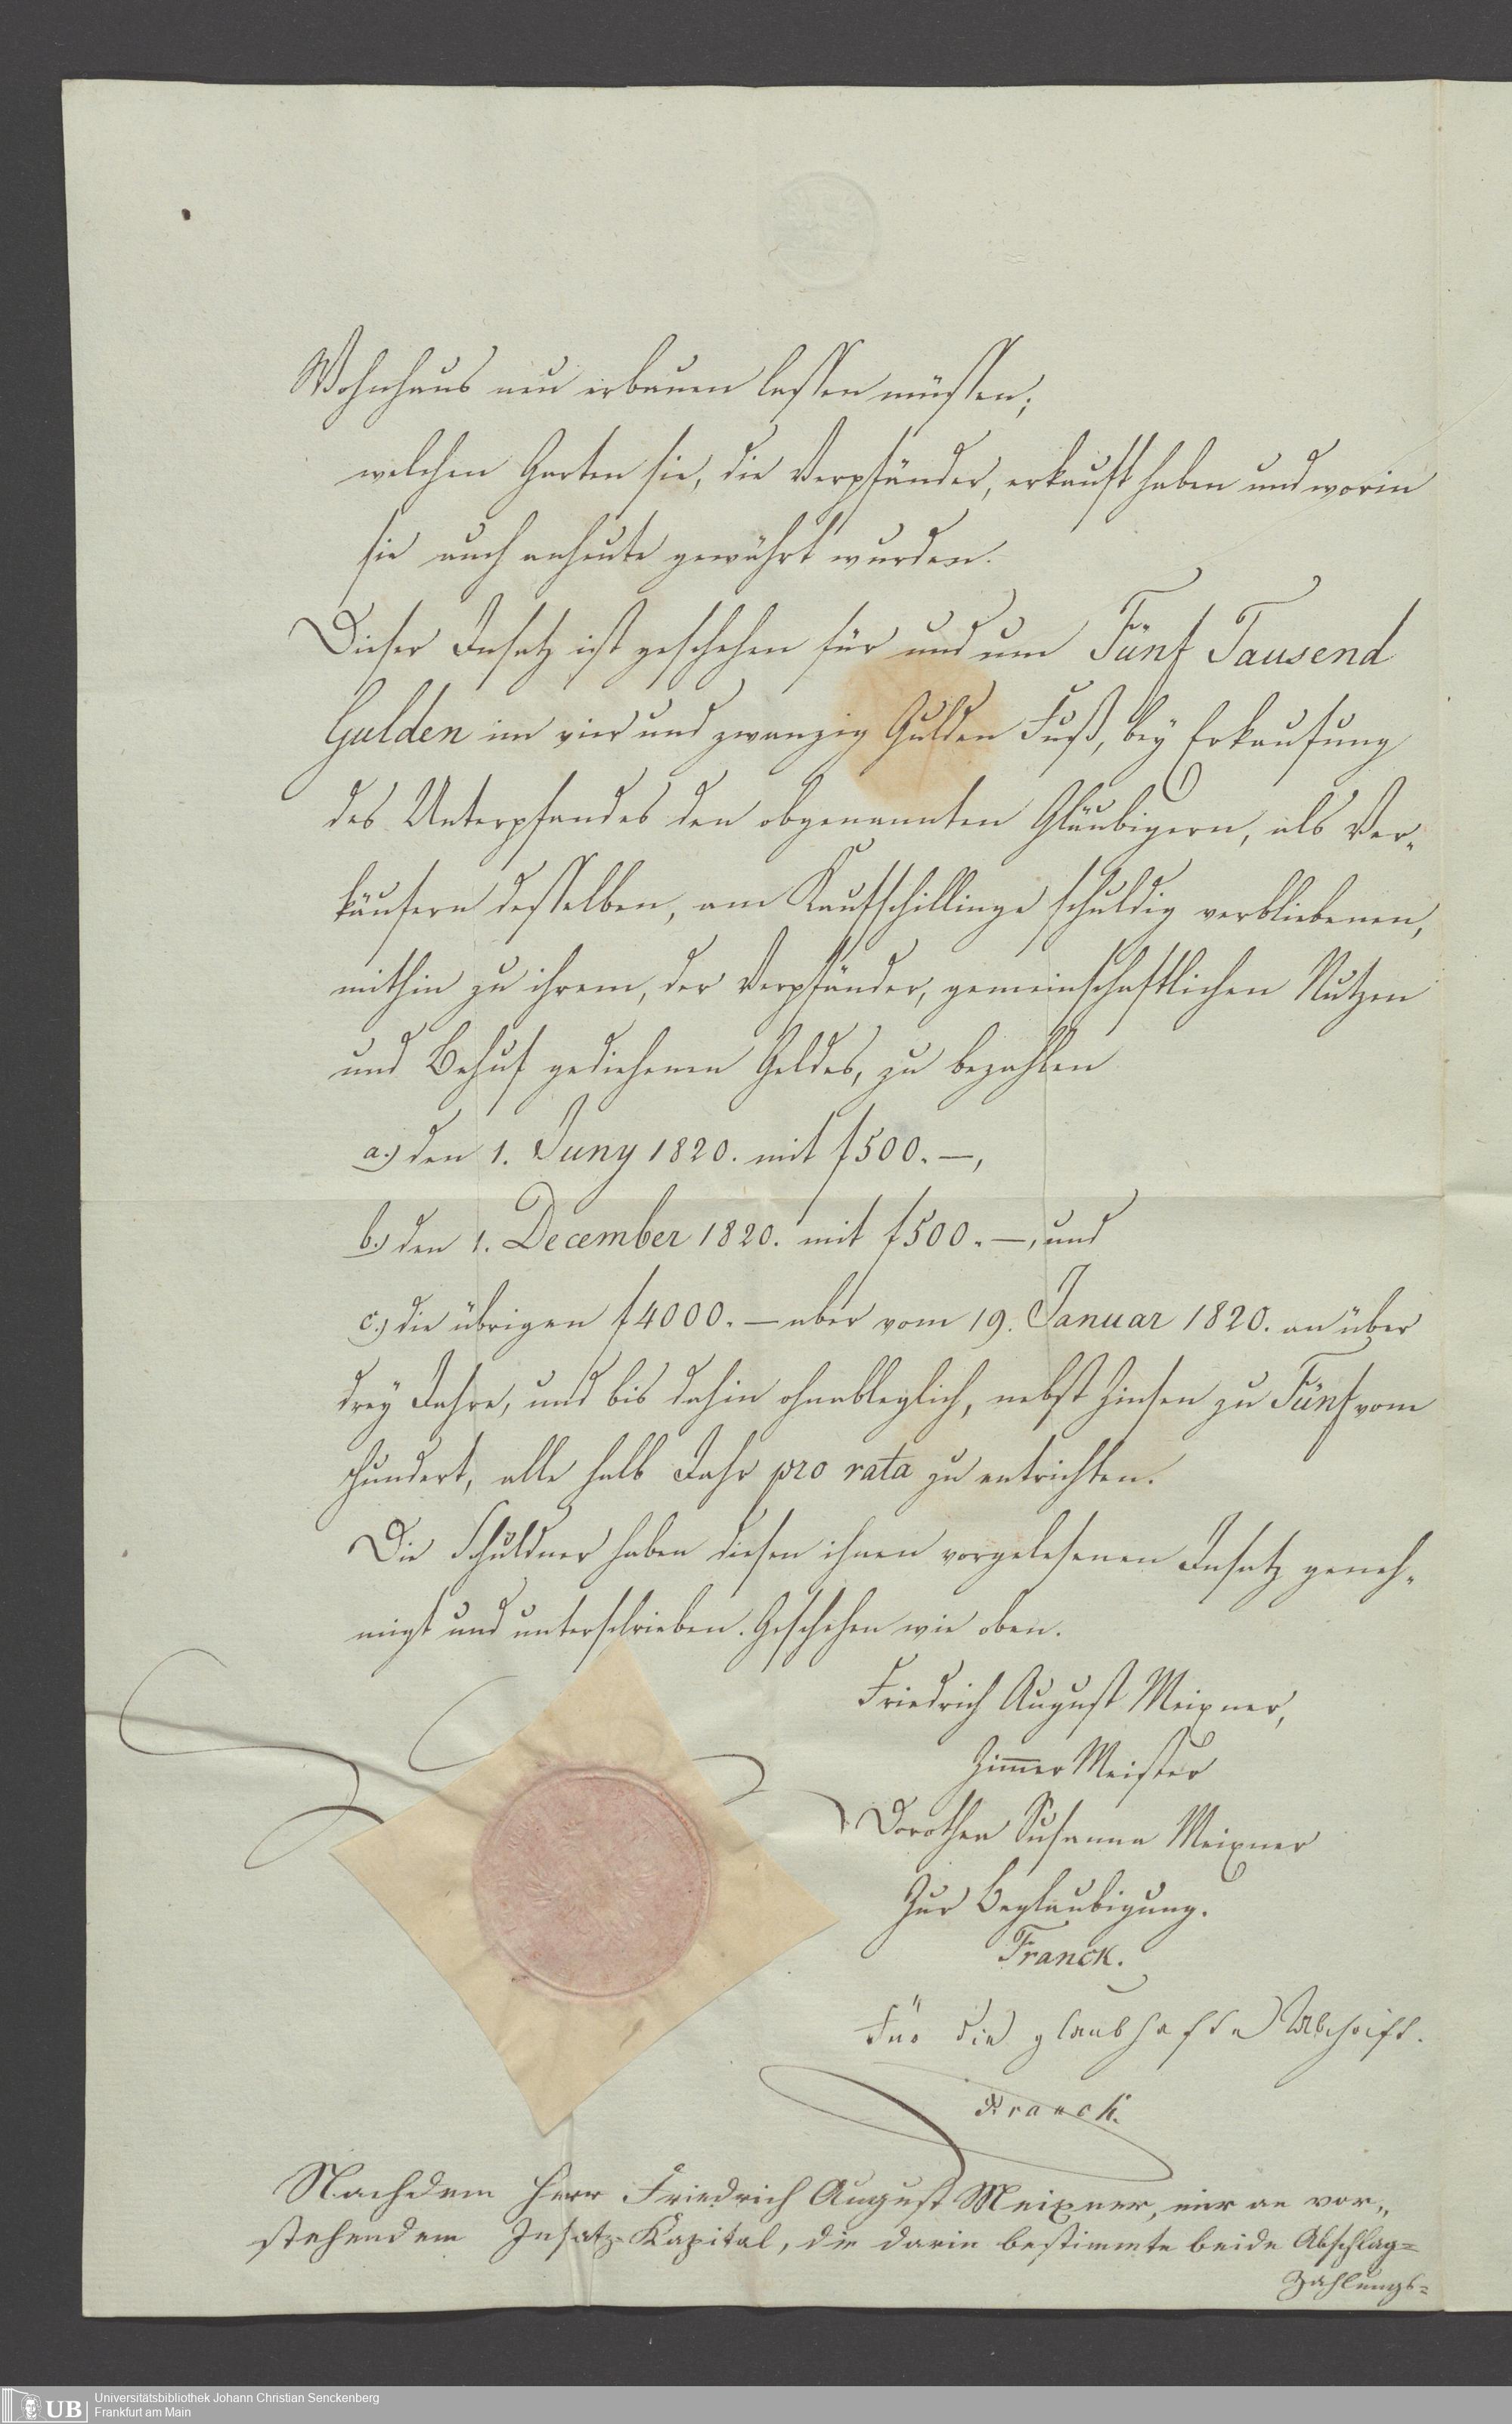 Wohnhaus neu erbauen lassen müssen;
welchen Garten sie, die Verpfänder, erkauft haben und worin
sie auch anheute gewährt wurden.
Dieser Insatz ist geschehen für und um Fünf Tausend
Gulden im vier und zwanzig Gulden Fuß, bey Erkaufung
des Unterpfandes den obgenannten Gläubigern, als Ver-
käufern desselben, am Kaufschillinge schuldig verbliebenen,
mithin zu ihrem, der Verpfänder, gemeinschaftlichen Nutzen
und Behuf gediehenen Geldes, zu bezahlen
a.) den 1. Juny 1820. mit f 500. —,
b.) den 1. December 1820. mit f 500. —, und
c.) die übrigen f 4000. — aber vom 19. Januar 1820. an über
drey Jahre, und bis dahin ohnableglich, nebst Zinsen zu Fünf vom
Hundert, alle halb Jahr pro rata zu entrichten.
Die Schuldner haben diesen ihnen vorgelesenen Insatz geneh-
migt und unterschrieben. Geschehen wie oben.
Friedrich August Meixner,
Zimmer Meister
Dorothea Susanna Meixner
Zur Beglaubigung.
Franck.
Für die glaubhafte Abschrift.
Franck.
Nachdem Herr Friedrich August Meixner, mir an vor-
stehendem Insatz-Kapital, die darin bestimmte beide Abschlag=
Zahlungs=
UB
Universitätsbibliothek Johann Christian Senckenberg
Frankfurt am Main